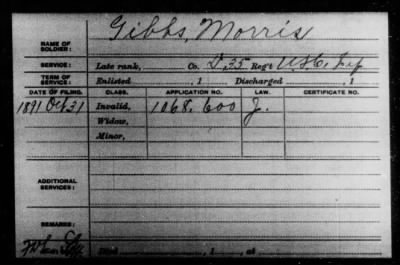 Gibbs, Morris
NAME OF SOLDIER:
SERVICE: Late rank, Co. D, 35 Reg't U.S.C. Inf
TERM OF SERVICE: Enlisted , 1 Discharged , 1
DATE OF FILING. CLASS. APPLICATION NO. LAW. CERTIFICATE NO.
1891 Oct 31 Invalid, 1068.600 J.
Widow,
Minor,
ADDITIONAL SERVICES:
REMARKS:
Died , 1 , at